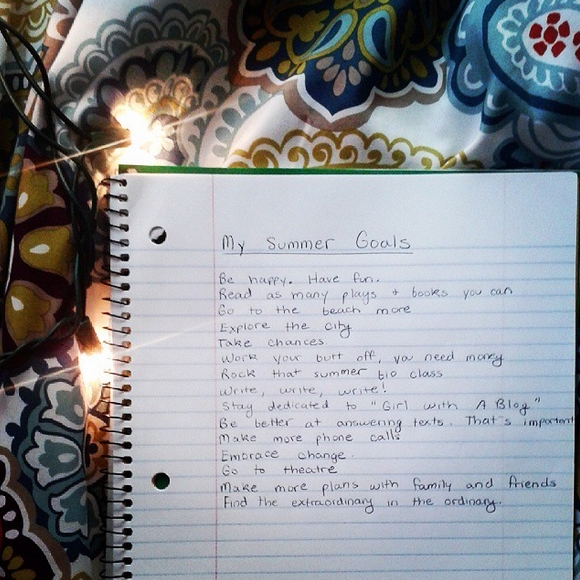 My Summer Goals
Be happy. Have fun.
Read as many plays + books you can
Go to the beach more
Explore the city
Take chances
Work your butt off, you need money
Rock that summer bio class
Write, write, write!
Stay dedicated to "Girl with A Blog"
Be better at answering texts. That's important
Make more phone calls
Embrace change.
Go to theatre
Make more plans with family and friends
Find the extraoidinary in the ordinary.